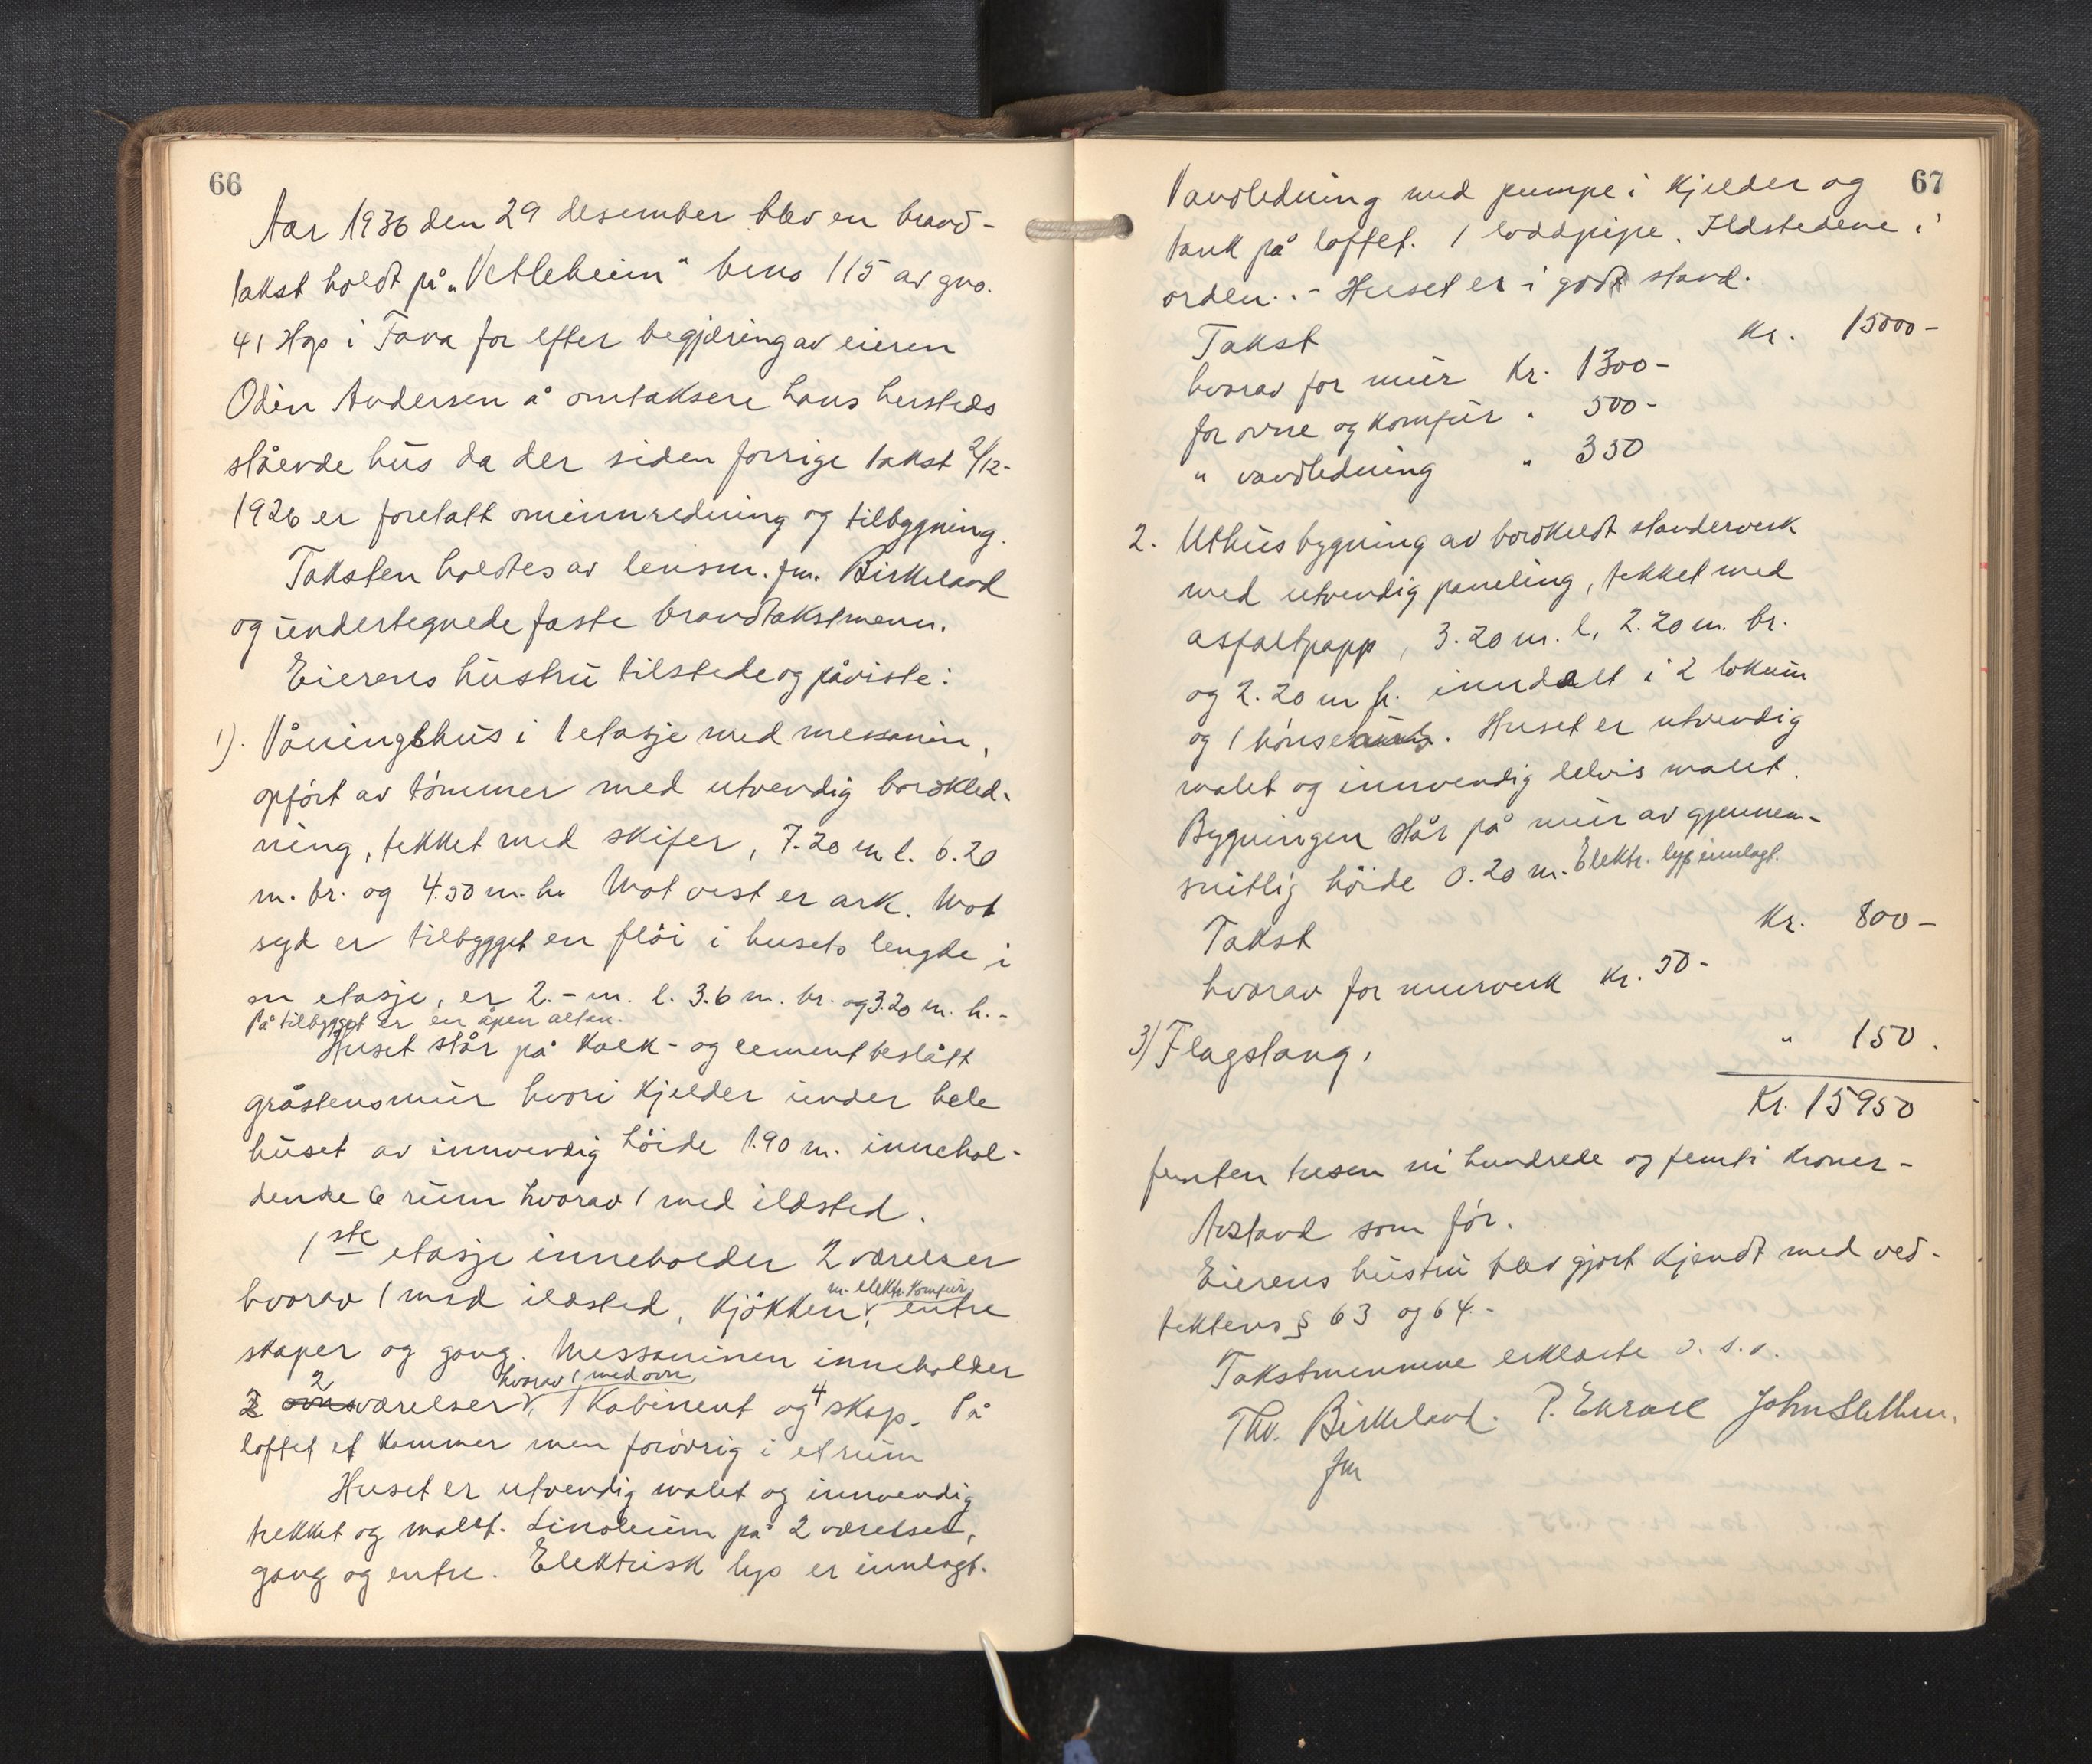 66
Aar 1936 den 29 desember blev en brand-
takst holdt på „Vetleheim" bruno 115 av gno.
41 Hop i Fana for efter begjæring av eieren
Odin Andersen å omtaksere hans hersteds
stående hus da der siden forrige takst 2/12-
1926 er foretatt ominnredning og tilbygning.
Taksten holdtes av lensm. fm. Birkeland
og undertegnede faste brandtakstmenn.
Eierens hustru tilstede og påviste:
1). Våningshus i 1 etasje med messanin,
opført av tømmer med utvendig bordkled-
ning, tekket med skifer, 7.20 m l. 6.20
m. br. og 4.50 m. h. Mot vest er ark. Mot
syd er tilbygget en fløi i husets lengde i
en etasje, er 2.- m. l. 3.6 m. br. og 3.20 m. h.-
På tilbygget er en åpen altan.
Huset står på kalk- og cementbeslått
gråstensmur hvori kjelder under hele
huset av innvendig høide 1.90 m. innehol-
dende 6 rum hvorav 1 med ildsted.
1ste etasje inneholder 2 værelser
hvorav 1 med ildsted, kjøkken m. elektr. komfur, entre
skaper og gang. Messaninen inneholder
2 værelser hvorav 1 med ovn, 1 kabinent og 4 skap. På
loftet et kammer men forøvrig i et rum
Huset er utvendig malet og innvendig
trekket og malet. Linoleum på 2 værelser,
gang og entre. Elektrisk lys er innlagt.
67
Vandledning med pumpe i kjelder og
tank på loftet. 1 loddpipe. Ildstedene i
orden. - Huset er i godt stand.
Takst Kr. 15000-
hvorav for mur Kr. 1300-
for ovne og komfur " 500-
" vandledning " 350
2. Uthusbygning av bordkledt standerverk
med utvendig paneling, tekket med
asfaltpapp, 3.20 m. l, 2.20 m. br.
og 2.20 m h. inndelt i 2 lokum
og 1 hønsehus. Huset er utvendig
malet og innvendig delvis malet.
Bygningen står på mur av gjennem-
snitlig høide 0.20 m. Elektr. lys innlagt.
Takst Kr. 800-
hvorav for murverk Kr. 50-
3) Flagstang, " 150.
Kr. 15950
femten tusen ni hundrede og femti kroner-
Avstand som før.
Eierens hustru blev gjort kjendt med ved-
tektens § 63 og 64.-
Takstmennene erklærte o. s. v.
Thv. Birkeland. P. Ekrall John Slethen.
fm